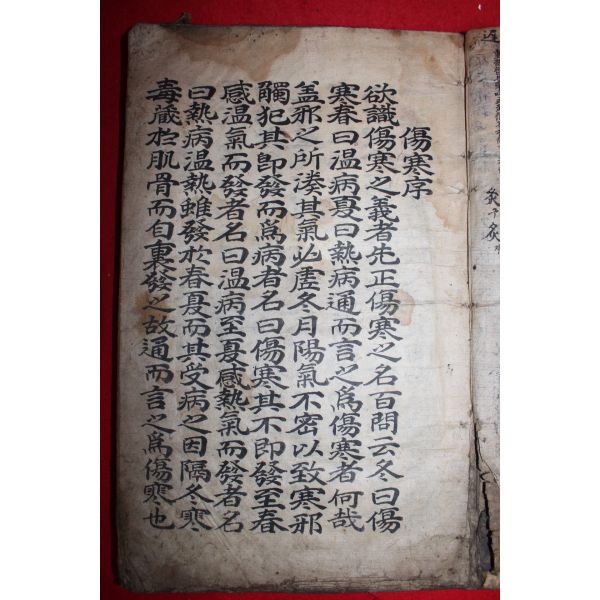 傷寒序
欲識傷寒之義者先正傷寒之名百問云冬曰傷
寒春曰温病夏曰熱病通而言之爲傷寒者何哉
盖邪之所湊其氣必虛冬月陽氣不密以致寒邪
觸犯其卽發而爲病者名曰傷寒其不即發至春
感温氣而發者名曰温病至夏感熱氣而發者名
曰熱病温熱雖發於春夏而其受病之因隔冬寒
毒藏於肌骨而自裏發之故通而言之爲傷寒也